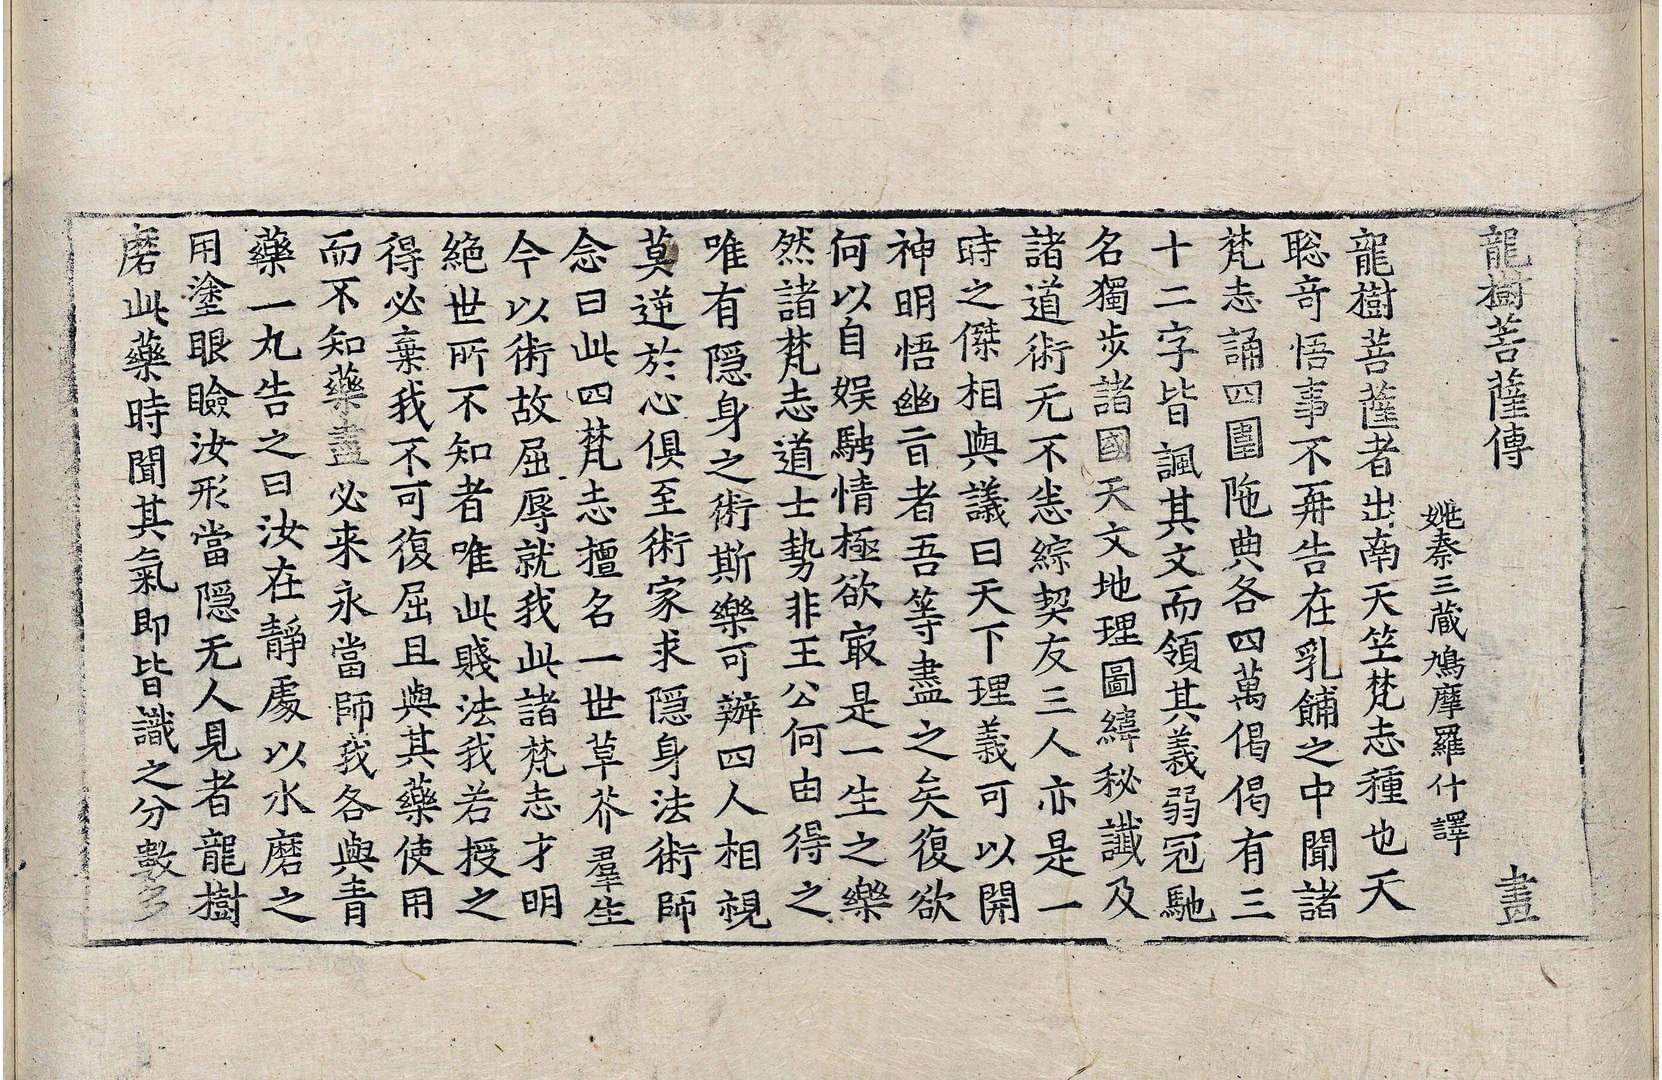 龍樹菩薩傳 晝
姚秦三藏鳩摩羅什譯
龍樹菩薩者出南天竺梵志種也天
聡竒悟事不再告在乳餔之中聞諸
梵志誦四圍陁典各四萬偈偈有三
十二字皆諷其文而領其義弱冠馳
名獨步諸國天文地理圖緯秘讖及
諸道術无不悉綜契友三人亦是一
時之傑相與議曰天下理義可以開
神明悟幽㫖者吾等盡之矣復欲
何以自娛騁情極欲㝡是一生之樂
然諸梵志道士勢非王公何由得之
唯有隱身之術斯樂可辦四人相視
莫逆於心俱至術家求隱身法術師
念曰此四梵志擅名一世草芥羣生
今以術故屈辱就我此諸梵志才明
絶世所不知者唯此賤法我若授之
得必棄我不可復屈且與其藥使用
而不知藥盡必来永當師我各與青
藥一丸告之曰汝在静處以水磨之
用塗眼瞼汝形當隱无人見者龍樹
磨此藥時聞其氣即皆識之分數多